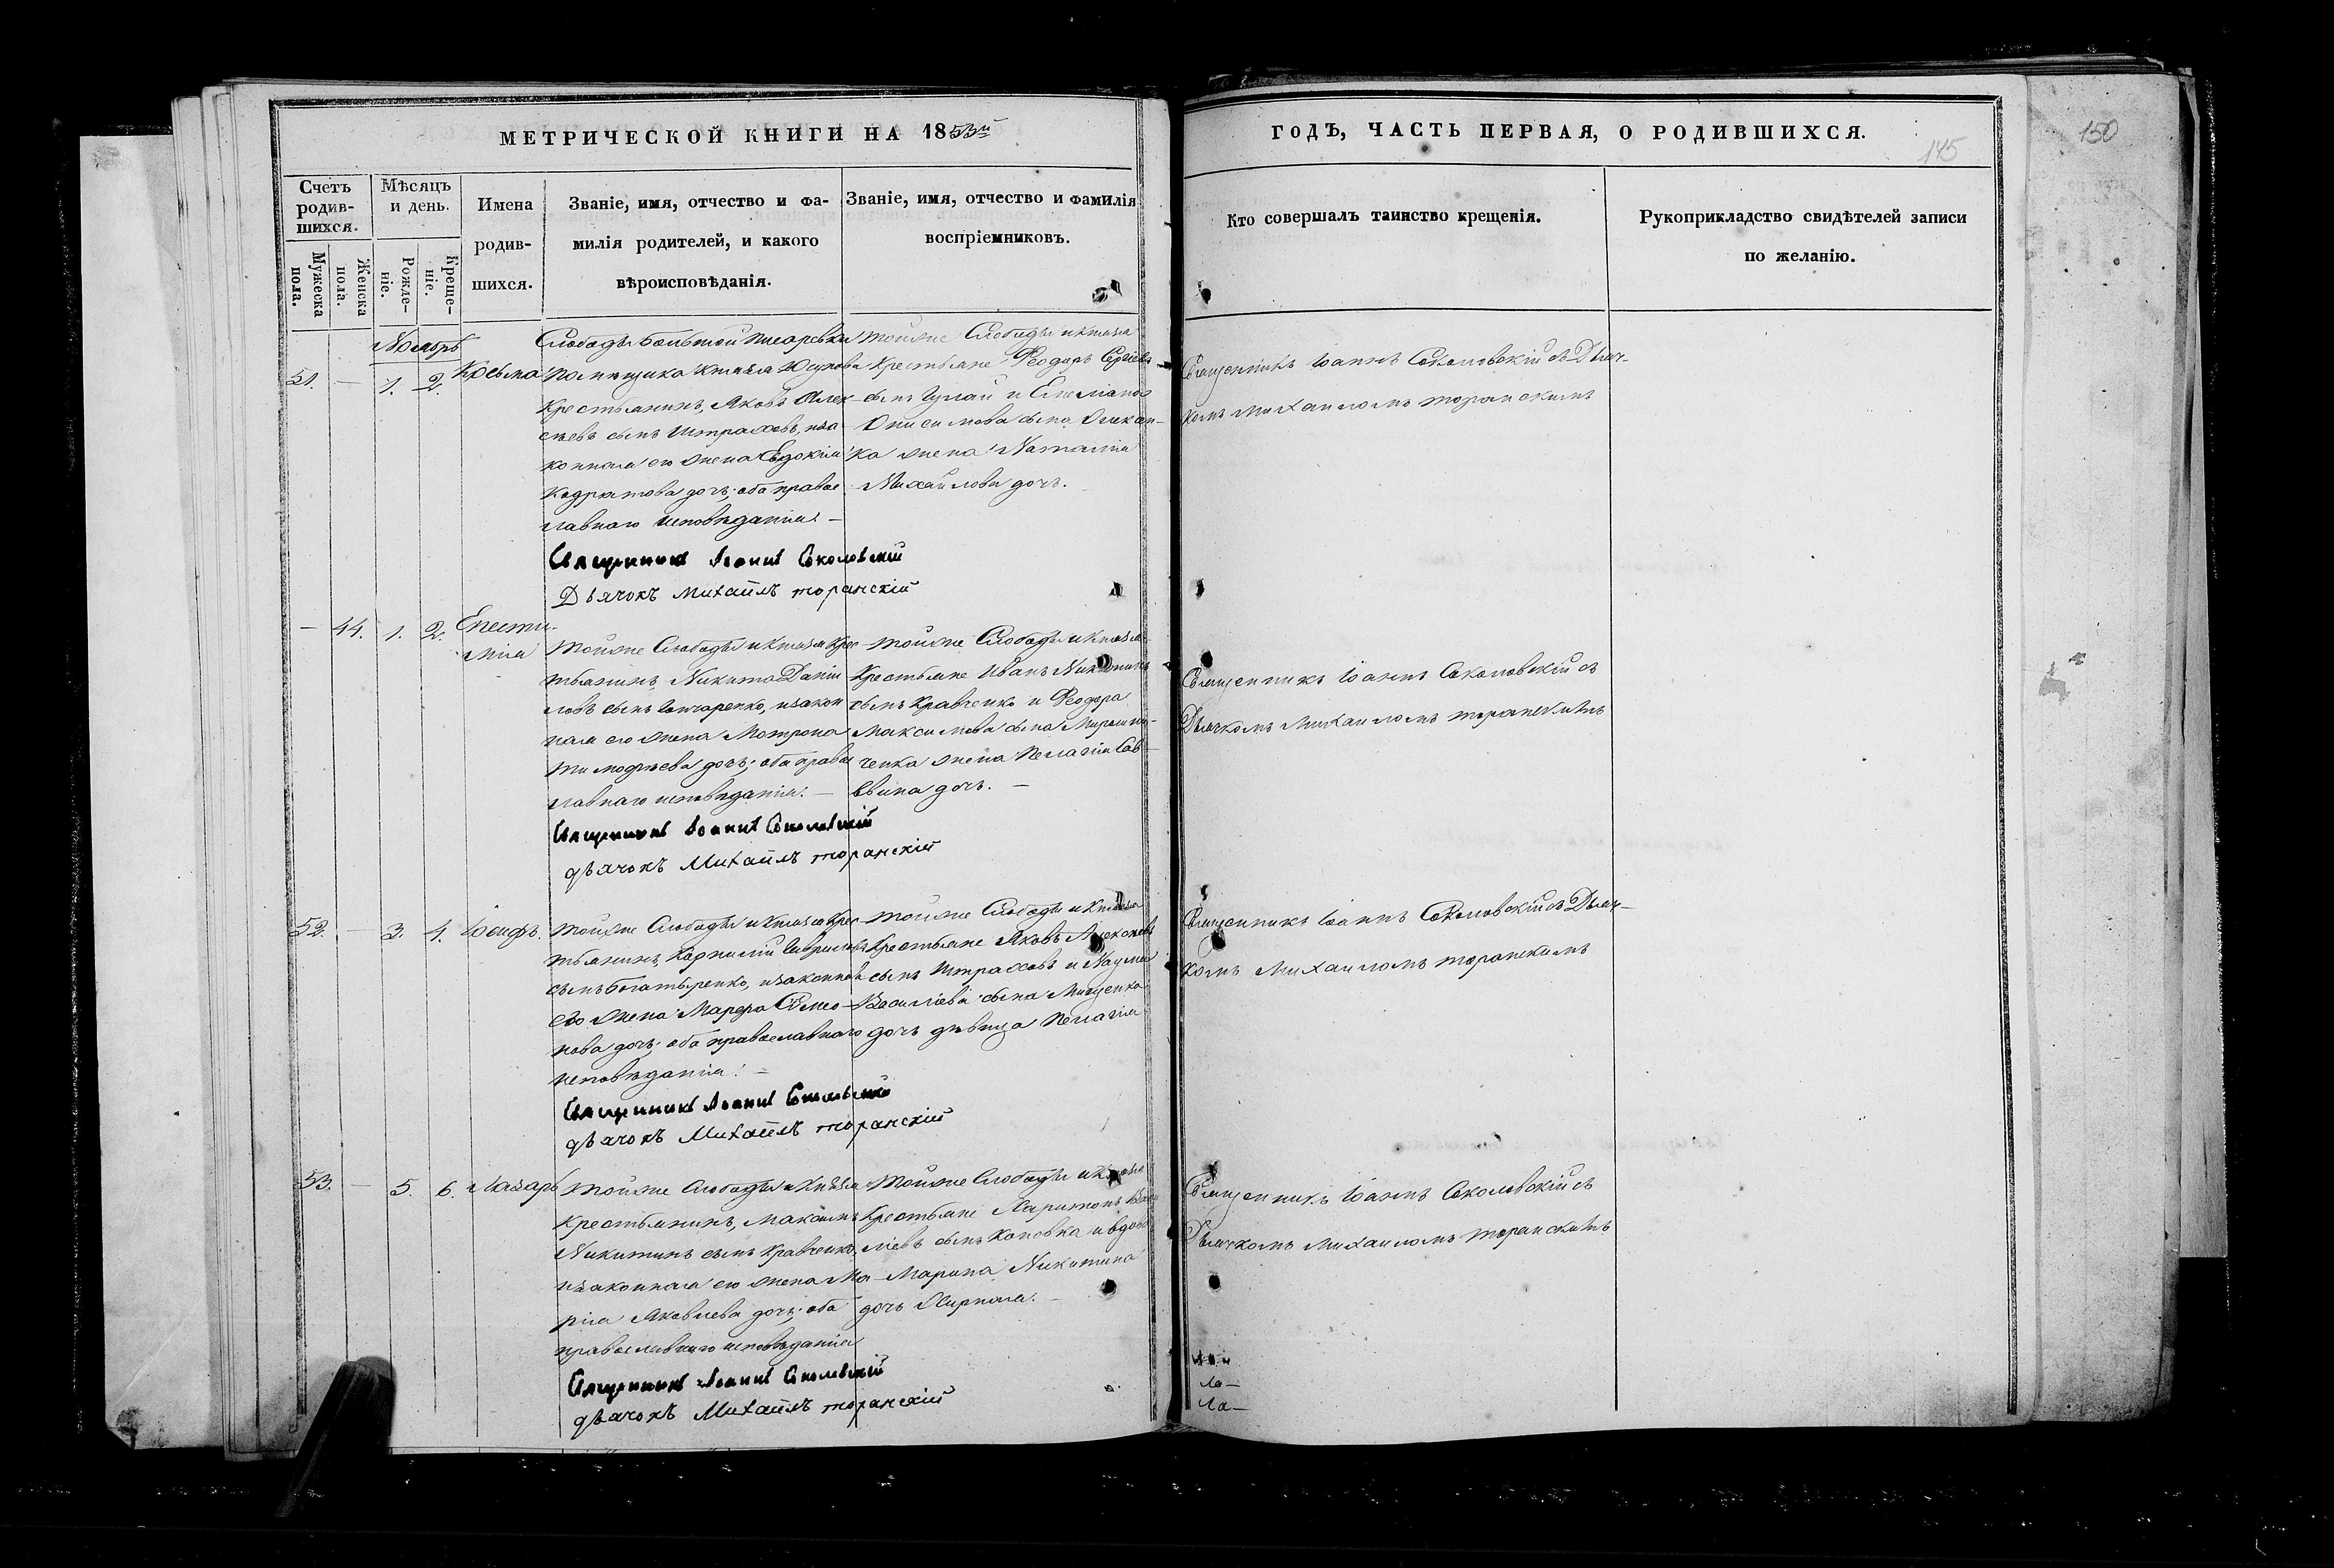 МЕТРИЧЕСКОЙ КНИГИ НА 1853й
ГОДЪ, ЧАСТЬ ПЕРВАЯ, О РОДИВШИХСЯ.
145
150
Счетъ родив-шихся.
Мужеска пола.
Женска пола.
Мѣсяцъ и день.
Рожде-ніе.
Креще-ніе.
Имена
родив-
шихся.
Званіе, имя, отчество и фа-
милія родителей, и какого
вѣроисповѣданія.
Званіе, имя, отчество и фамилія
воспріемниковъ.
Кто совершалъ таинство крещенія.
Рукоприкладство свидѣтелей записи
по желанію.
Ноябрь
51. — 1. 2. Козьма
Слободы Большой Писаревки
Помѣщика Князя Юсупова
Крестьянинъ, Яковъ Алек-
сѣевъ сынъ Штраховъ, иза-
конная его жена Евдокія
Кодратова дочь; оба право-
славнаго исповѣданія. —
Священникъ Іоаннъ Соколовскій
Дьячокъ Михаилъ торанскій
тойже Слободы и Князя
Крестьяне Феодоръ Сергіевъ
сынъ Цулай и Емеліана
Онисимова сына Олексен-
ка жена Наталія
Михайлова дочь.
Священникъ Іоаннъ Соколовскій съ Дьяч-
комъ Михаиломъ торанскимъ
— 44. 1. 2. Епести-
мія
тойже Слободы и Князя Крес-
тьянинъ, Никита Даніи-
ловъ сынъ Гончаренко, изакон-
ная его жена Мотрона
Тимофѣева дочь; оба право-
славнаго исповѣданія. —
Священникъ Іоаннъ Соколовскій
дьячокъ Михаилъ торанскій
тойже Слободы и Князя
Крестьяне Иванъ Никитинъ
сынъ Кравченко и Феодора
Максимова сына Мирошни-
ченка жена Пелагія Сав-
ввина дочь. —
Священникъ Іоаннъ Соколовскій съ
Дьячкомъ Михаиломъ торанскимъ
52. — 3. 4. Іосифъ.
тойже Слободы и Князя Крес-
тьянинъ, Корнилій Гавриловъ
сынъ Богатыренко, изаконная
его жена Марфа Семео-
нова дочь; оба православнаго
исповѣданія. —
Священникъ Іоаннъ Соколовскій
дьячокъ Михаилъ торанскій
тойже Слободы и Князя
Крестьяне Яковъ Алексѣевъ
сынъ Штраховъ и Наума
Василіева сына Мищенка
дочь дѣвица Пелагія
Священникъ Іоаннъ Соколовскій съ Дьяч-
комъ Михаиломъ торанскимъ
53. — 5. 6. Лазарь
тойже Слободы и Князя
Крестьянинъ, Максимъ
Никитинъ сынъ Кравченко,
изаконная его жена Ма-
рія Яковлева дочь; оба
православнаго исповѣданія
Священникъ Іоаннъ Соколовскій
дьячокъ Михаилъ торанскій
тойже Слободы и Князя
Крестьяне Харитонъ Васи-
ліевъ сынъ Коповка и вдова
Марина Никитина
дочь
Священникъ Іоаннъ Соколовскій съ
Дьячкомъ Михаиломъ торанскимъ
Ла—
Ла—